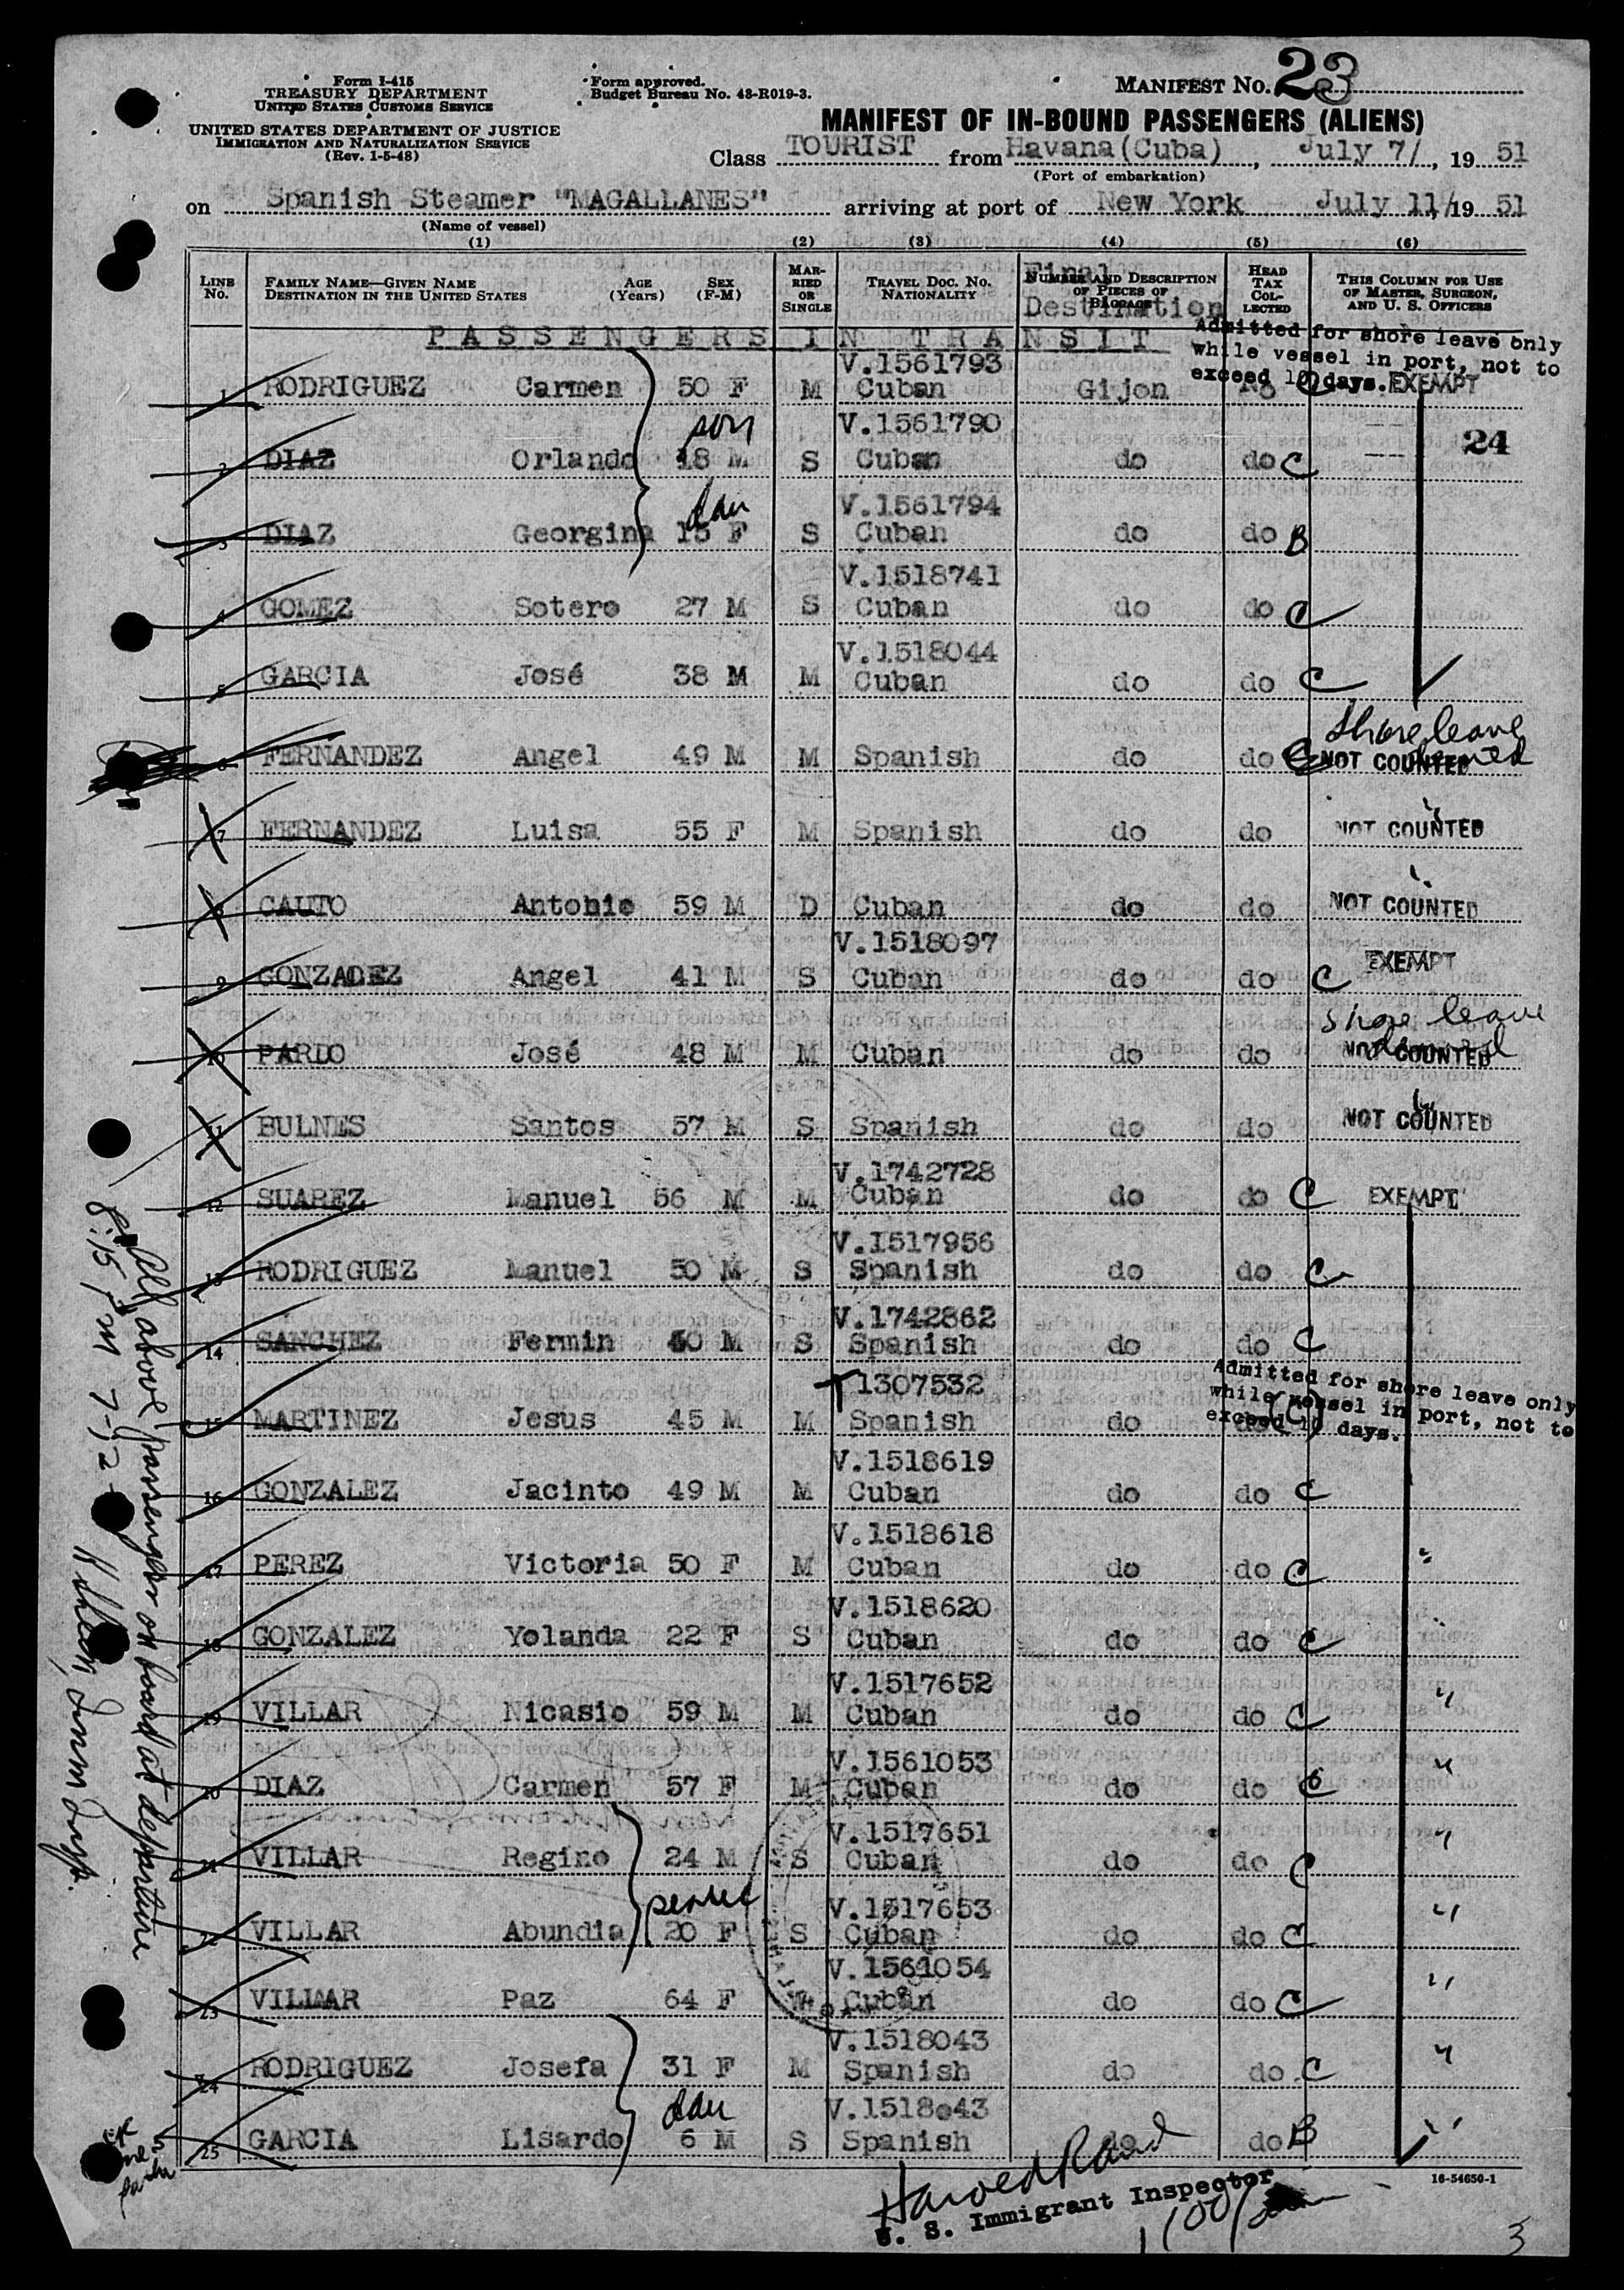 Form I-415
TREASURY DEPARTMENT
UNITED STATES CUSTOMS SERVICE
UNITED STATES DEPARTMENT OF JUSTICE
IMMIGRATION AND NATURALIZATION SERVICE
(Rev. 1-5-48)
Form approved.
Budget Bureau No. 43-R019-3.
MANIFEST NO. 23
MANIFEST OF IN-BOUND PASSENGERS (ALIENS)
Class TOURIST from Havana (Cuba), July 7/, 19 51
(Port of embarkation)
on Spanish Steamer "MAGALLANES" arriving at port of New York July 11/19 51
(Name of vessel)
(1) (2) (3) (4) (5) (6)
LINE NO. FAMILY NAME—GIVEN NAME DESTINATION IN THE UNITED STATES AGE (Years) SEX (F-M) MARRIED OR SINGLE TRAVEL DOC. NO. NATIONALITY NUMBER AND DESCRIPTION OF PIECES OF BAGGAGE HEAD TAX COLLECTED THIS COLUMN FOR USE OF MASTER, SURGEON, AND U. S. OFFICERS
Final Destination
PASSENGERS IN TRANSIT
Admitted for shore leave only
while vessel in port, not to
exceed 10 days. EXEMPT
V.1561793
1 RODRIGUEZ Carmen 50 F M Cuban Gijon No C
son V.1561790 24
2 DIAZ Orlando 18 M S Cuban do do C
dau V.1561794
3 DIAZ Georgina 15 F S Cuban do do B
V.1518741
4 GOMEZ Sotero 27 M S Cuban do do C
V.1518044
5 GARCIA José 38 M M Cuban do do C
Shore leave denied
6 FERNANDEZ Angel 49 M M Spanish do do C NOT COUNTED
7 FERNANDEZ Luisa 55 F M Spanish do do NOT COUNTED
8 CAUTO Antonio 59 M D Cuban do do NOT COUNTED
V.1518097
9 GONZALEZ Angel 41 M S Cuban do do C EXEMPT
Shore leave denied
10 PARDO José 48 M M Cuban do do NOT COUNTED
11 BULNES Santos 57 M S Spanish do do NOT COUNTED
V.1742728
12 SUAREZ Manuel 56 M M Cuban do do C EXEMPT
V.1517956
13 RODRIGUEZ Manuel 50 M S Spanish do do C
V.1742862
14 SANCHEZ Fermin 40 M S Spanish do do C
Admitted for shore leave only
while vessel in port, not to
exceed 10 days.
T 1307532
15 MARTINEZ Jesus 45 M M Spanish do do C
V.1518619
16 GONZALEZ Jacinto 49 M M Cuban do do C
V.1518618
17 PEREZ Victoria 50 F M Cuban do do C "
V.1518620
18 GONZALEZ Yolanda 22 F S Cuban do do C
V.1517652
19 VILLAR Nicasio 59 M M Cuban do do C "
V.1561053
20 DIAZ Carmen 57 F M Cuban do do C "
V.1517651
21 VILLAR Regino 24 M S Cuban do do C "
V.1517653
22 VILLAR Abundia 20 F S Cuban do do C "
V.1561054
23 VILLAR Paz 64 F W Cuban do do C "
V.1518043
24 RODRIGUEZ Josefa 31 F M Spanish do do C "
dau V.1518043
25 GARCIA Lisardo 6 M S Spanish do do B "
16-54650-1
Harold Rand
U. S. Immigrant Inspector
3
All above passengers on board at departure
8:15 PM 7-12-
Imm Insp.